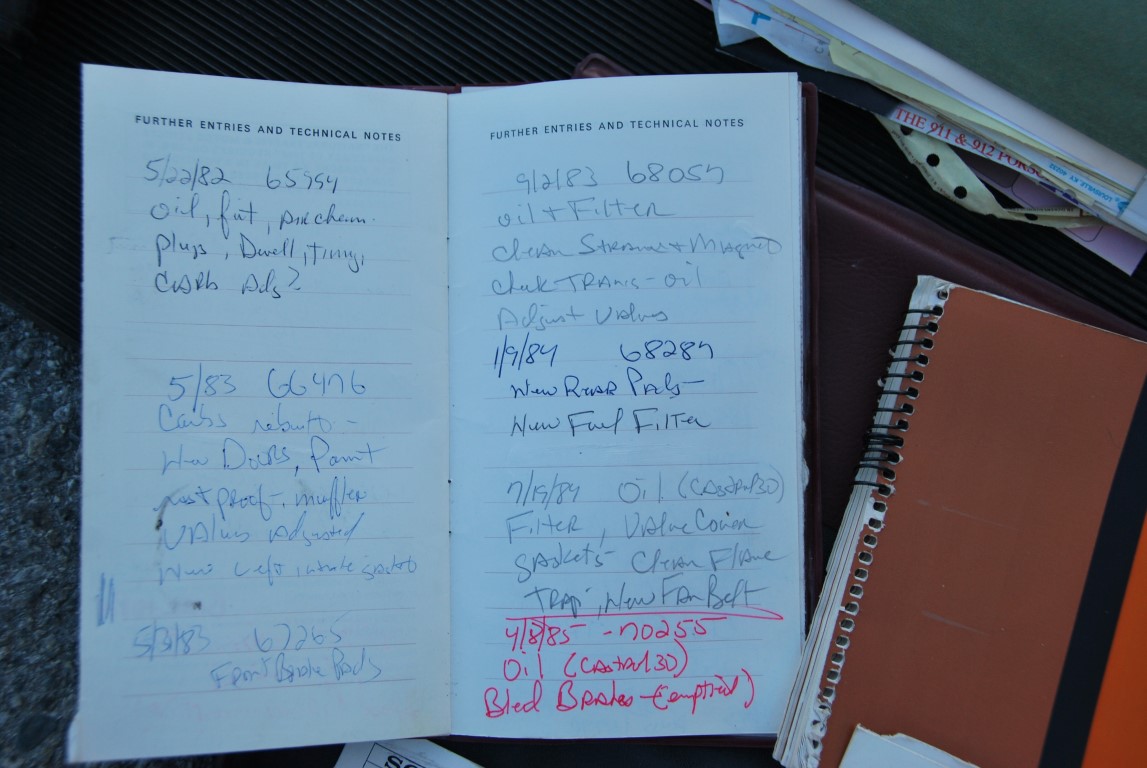 FURTHER ENTRIES AND TECHNICAL NOTES
5/22/82 65954
oil, filt,
Plugs, Dwell, Timing,
CARB Adj?
5/83 66476
Carbs rebuilt -
New Doors, Paint
rust proof, muffler
VAlves Adjusted
New Left intake gasket
5/31/83 67265
Front Brake Pads
FURTHER ENTRIES AND TECHNICAL NOTES
9/2/83 68057
oil + Filter
clean Strainer + Magnet
check TRANS - oil
Adjust valves
1/9/84 68287
New Rear Pads -
New Fuel Filter
7/19/84 Oil (Castrol 30)
Filter, Valve Cover
gaskets - Clean Flame
Trap, New Fan Belt
4/8/85 - 70255
Oil (Castrol 30)
Bled Brakes - (emptied)
THE 911 & 912 PORS
LOUISVILLE KY 40232